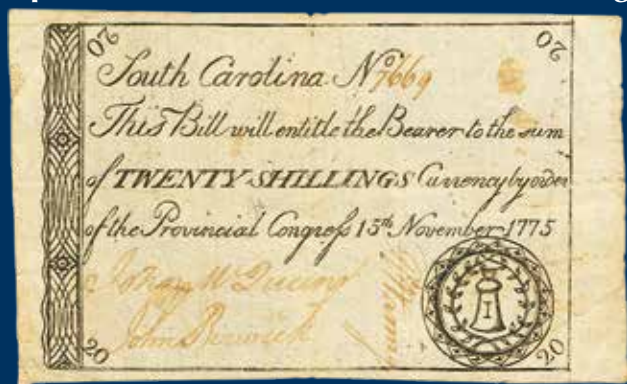 20 20
South Carolina Nº 7669
This Bill will entitle the Bearer to the sum
of TWENTY SHILLINGS Currency by order
of the Provincial Congreſs 15th November 1775
John
20 I 20